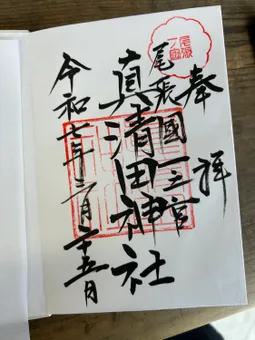 尾張
一ノ宮
奉拝
尾張國一之宮
真清田神社
令和七年二月二十五日